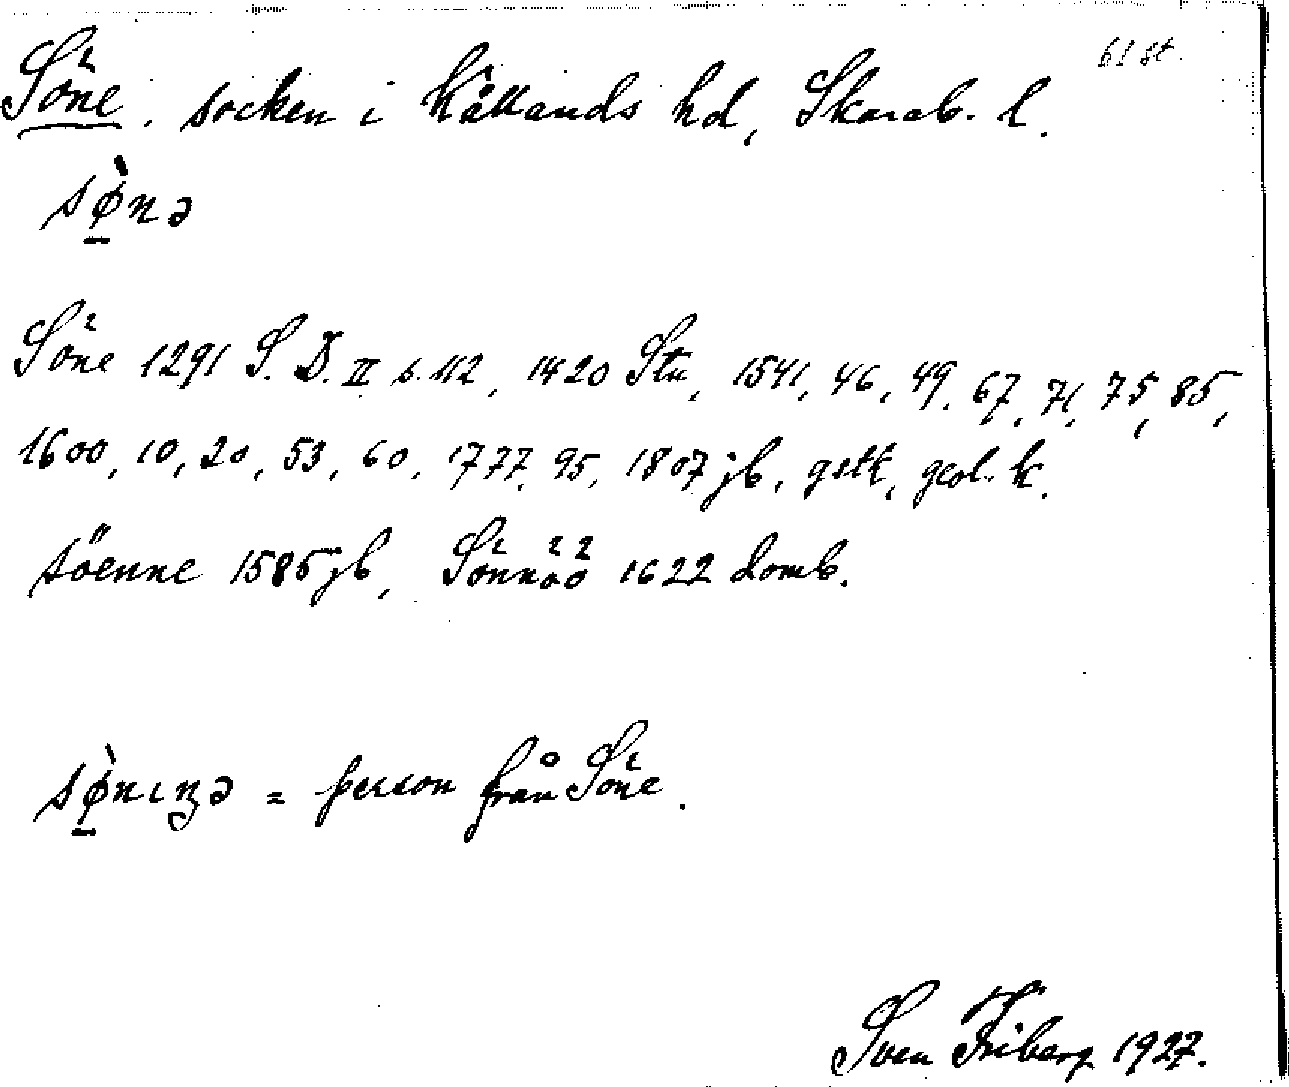 61 st.
Söne. socken i Kållands hd, Skarab. l.
sø̀nə
Söne 1291 S. D. II s. 112, 1420 Stu, 1541, 46, 49, 67, 71, 75, 85,
1600, 10, 20, 53, 60, 1777, 95, 1807 jb, gstk, geol. k.
söenne 1585 jb, Sönnöö 1622 domb.
sø̀nıŋə = person från Söne.
Sven Friberg 1927.